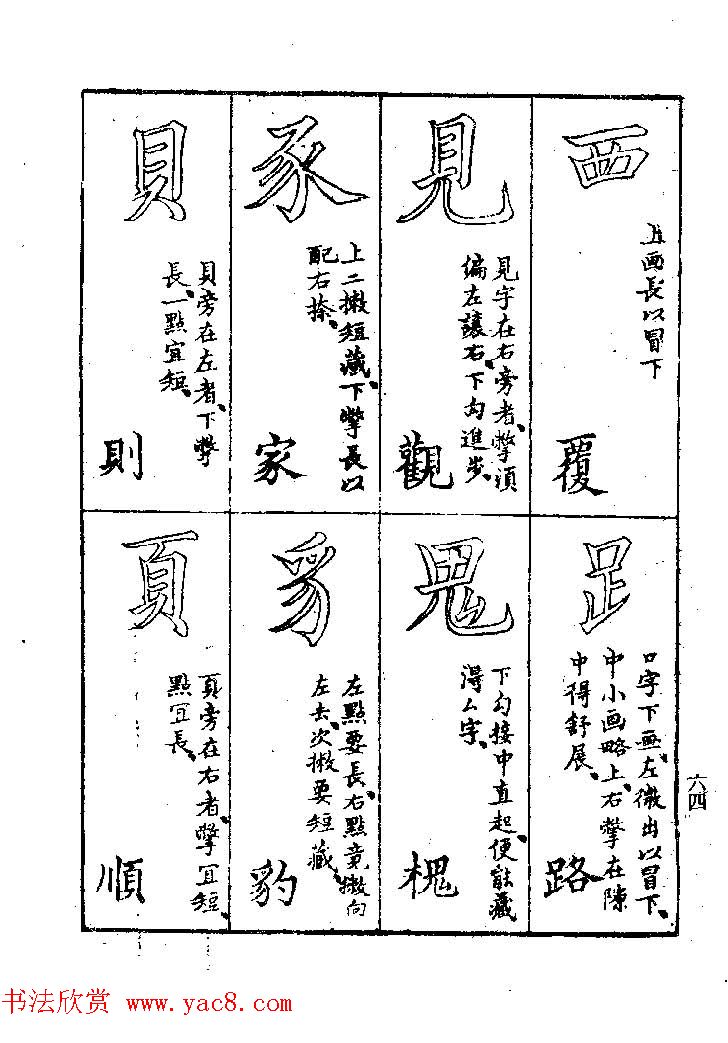 西
上画長以冒下
覆
見
見字在右旁者、撆須
偏左讓右、下勾進步、
觀
豕
上二撇短藏、下撆長以
配右捺、
家
貝
貝旁在左者、下撆
長、一點宜短、
則
𧾷
口字下画、左微出以冒下、
中小画略上、右撆在陳
中得舒展、
路
鬼
下勾接中直起、便能藏
得厶字、
槐
豸
左點要長、右點竟撇向
左去、次撇要短藏、
豹
頁
頁旁在右者、撆宜短、
點宜長、
順
六四
书法欣赏 www.yac8.com